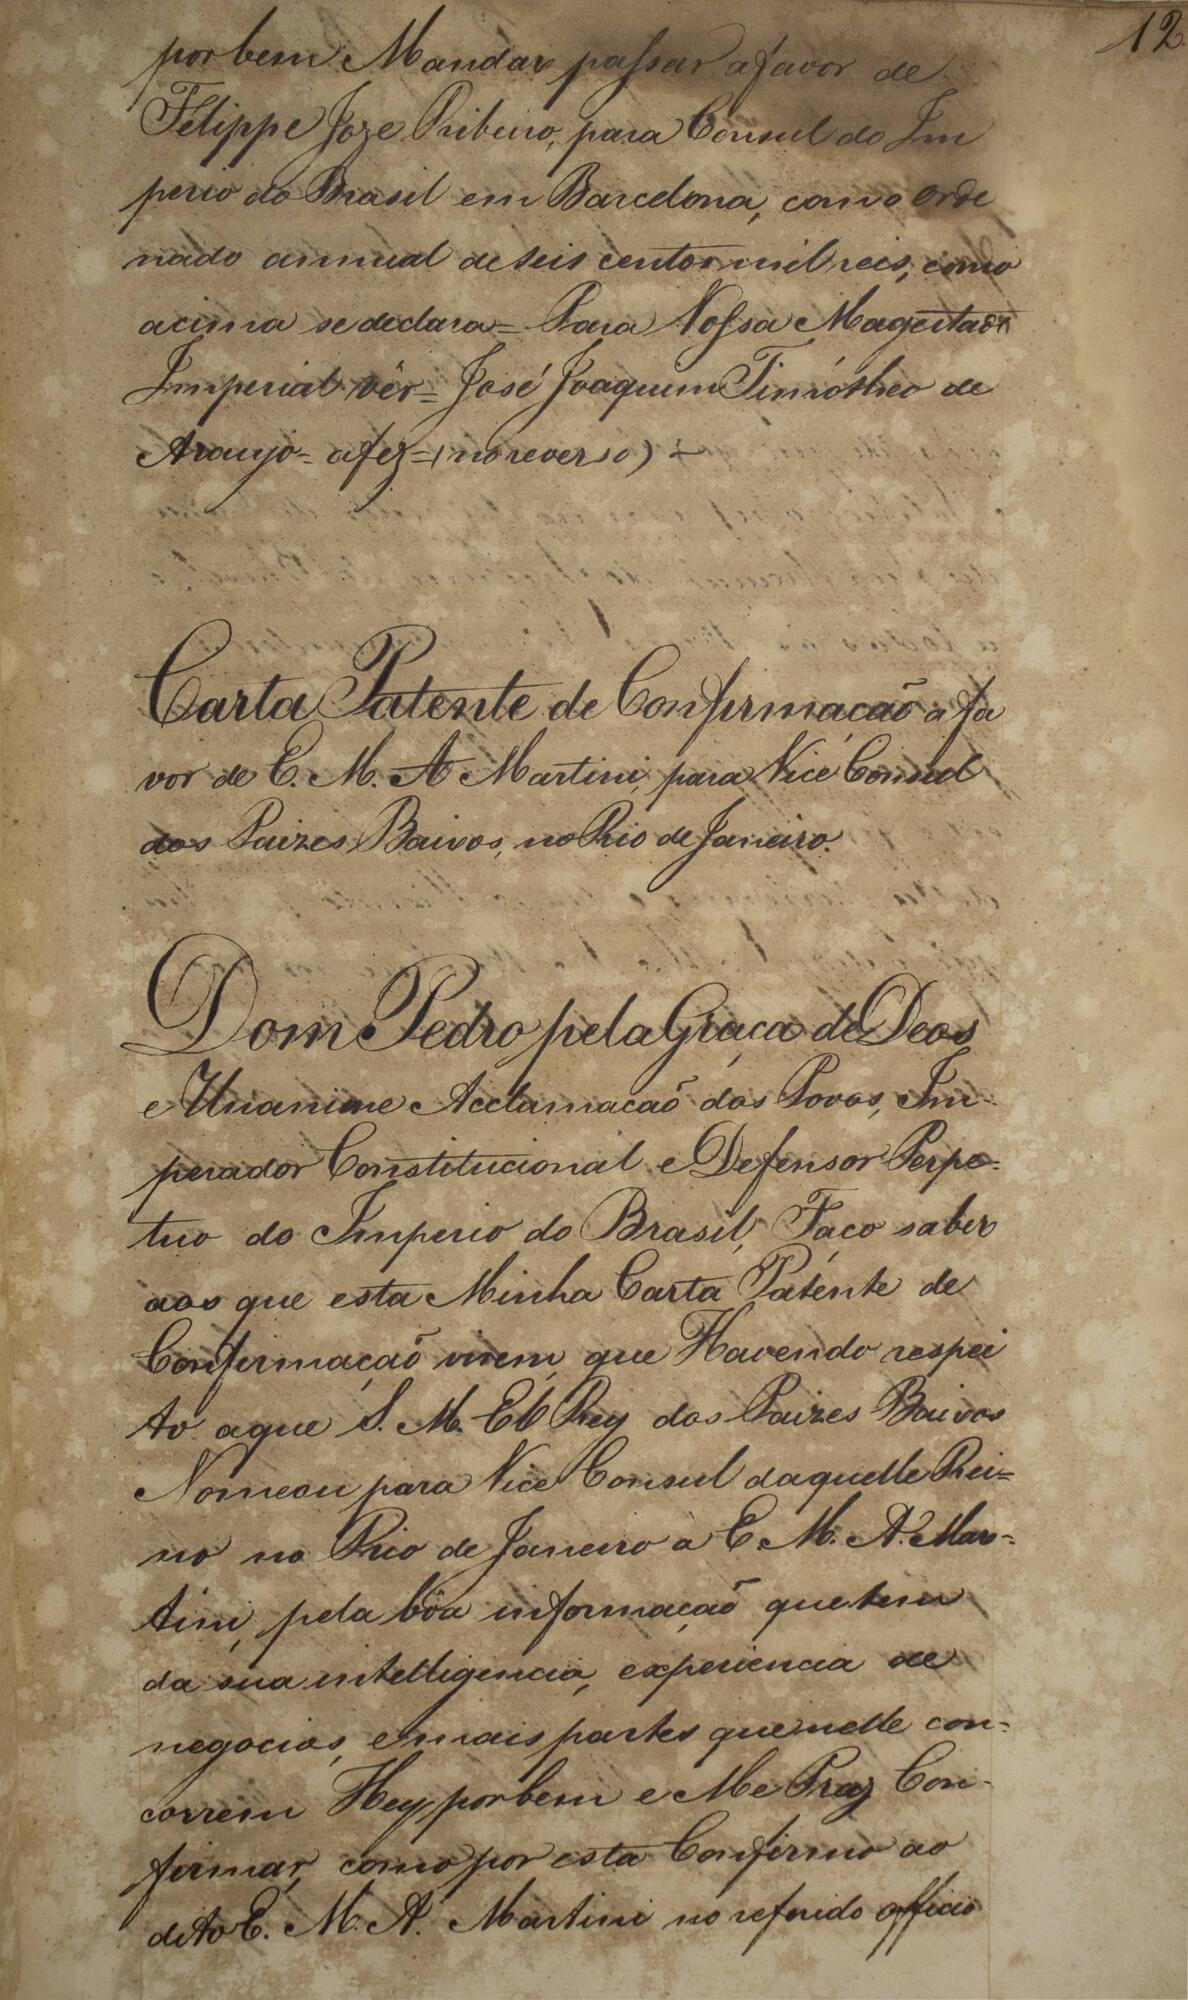 12
por bem Mandar passar a favor de
Felippe Joze Ribeiro, para Consul do Im
perio do Brasil em Barcelona, com o orde
nado annual de seis centos mil reis, como
acima se declara = Para Vossa Magestade
Imperial vêr = José Joaquim Timótheo de
Araujo = a fez = (no reverso) =
Carta Patente de Confirmacaõ a fa
vor de E. M. A. Martini, para Vice Consul
dos Paizes Baixos, no Rio de Janeiro.
Dom Pedro pela Graça de Deos
e Unanime Acclamacaõ dos Povos, Im-
perador Constitucional e Defensor Perpe=
tuo do Imperio do Brasil, Faço saber
aos que esta Minha Carta Patente de
Confirmaçaõ virem, que Havendo respei
to a que S. M. El Rey dos Paizes Baixos
Nomeou para Vice Consul daquelle Rei=
no no Rio de Janeiro a E. M. A. Mar=
tini, pela bôa informaçaõ que tem
da sua intelligencia, experiencia de
negocios, e mais partes que nelle con=
correm Hey por bem e Me Praz Con-
firmar, como por esta Confirmo ao
dito E. M. A. Martini no referido officio